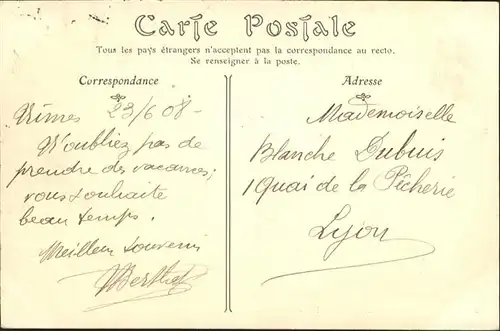 Carte Postale
Tous les pays étrangers n'acceptent pas la correspondance au recto.
Se renseigner à la poste.
Correspondance
Nimes 23/6 08-
N'oubliez pas de
prendre des vacances;
vous souhaite
beau temps.
Meilleur souvenir
Adresse
Mademoiselle
Blanche Dubuis
1 Quai de la Pêcherie
Lyon